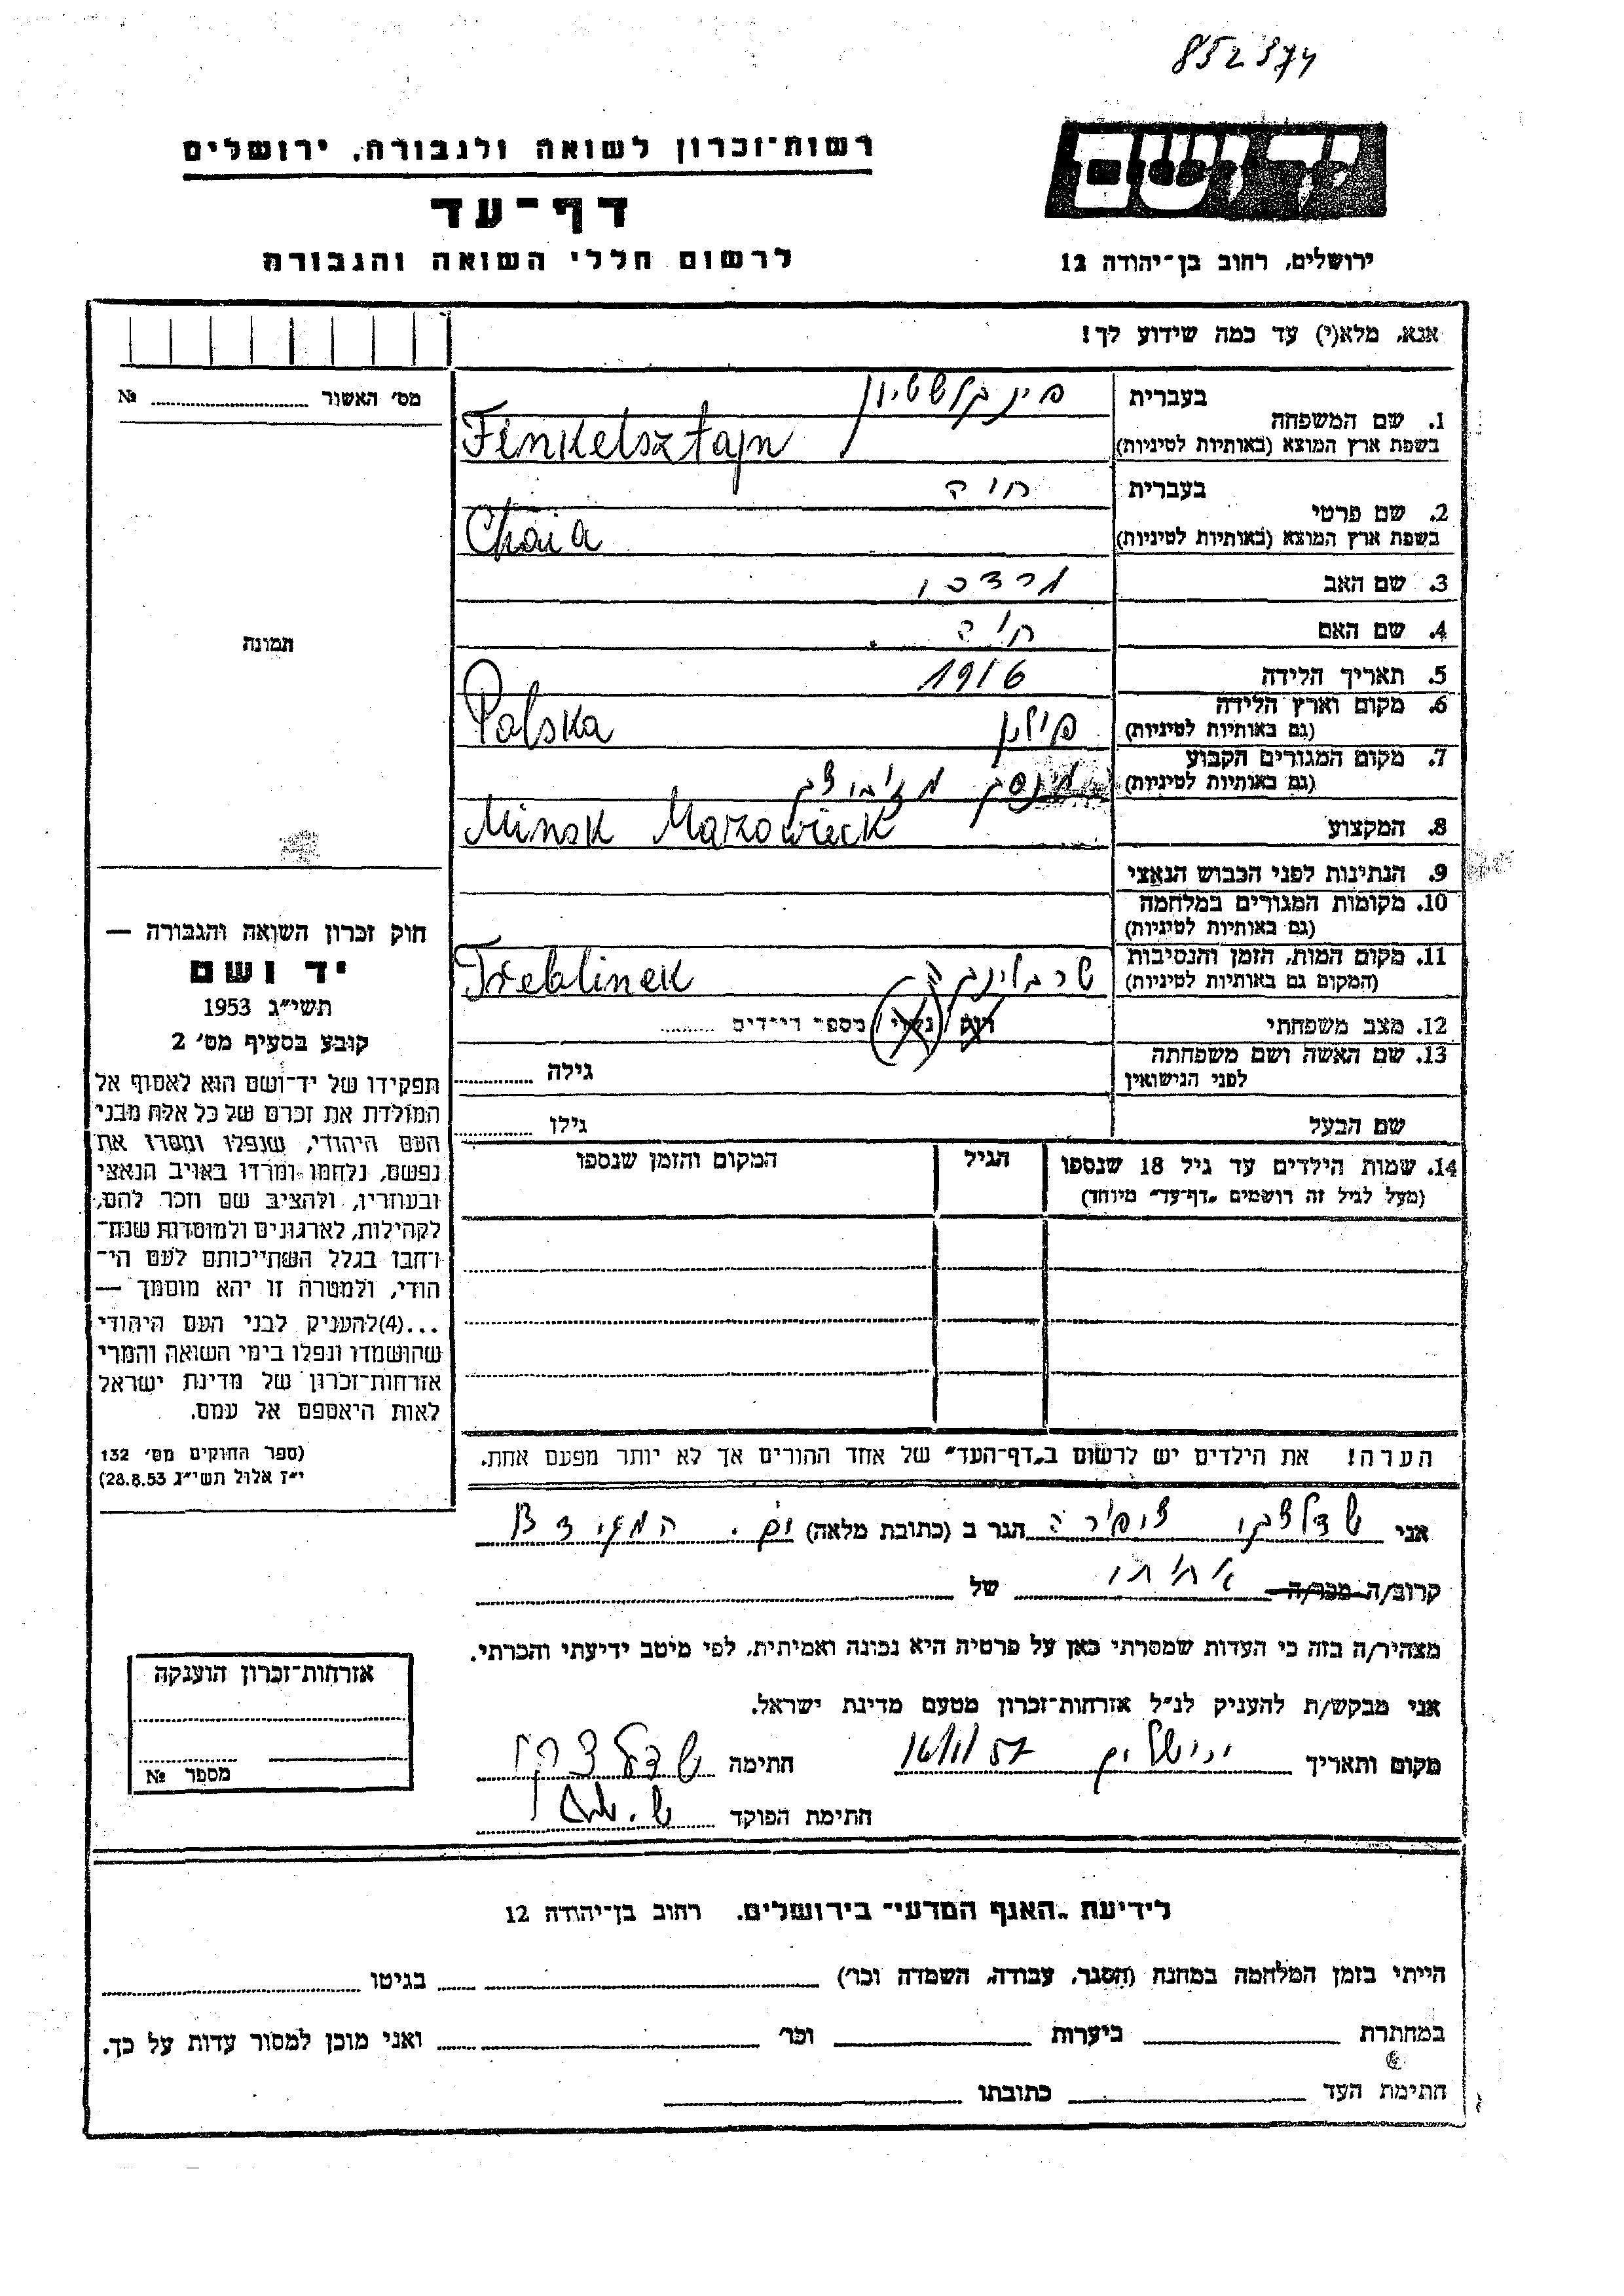 852374
יד ושם
רשות־זכרון לשואה ולגבורה, ירושלים
דף־עד
לרשום חללי השואה והגבורה
ירושלים, רחוב בן־יהודה 12
אנא, מלא(י) עד כמה שידוע לך!
מס׳ האשור ........ №
תמונה
1. שם המשפחה
בעברית
פינקלשטיין
בשפת ארץ המוצא (באותיות לטיניות)
Finkelsztajn
2. שם פרטי
בעברית
חיה
בשפת ארץ המוצא (באותיות לטיניות)
Chaia
3. שם האב מרדכי
4. שם האם חיה
5. תאריך הלידה 1916
6. מקום וארץ הלידה
(גם באותיות לטיניות)
פולין Polska
7. מקום המגורים הקבוע
(גם באותיות לטיניות)
מינסק
8. המקצוע
Minsk Mazowieck
9. הנתינות לפני הכבוש הנאצי
10. מקומות המגורים במלחמה
(גם באותיות לטיניות)
11. מקום המות, הזמן והנסיבות
(המקום גם באותיות לטיניות)
טרבלינקה Treblinek
12. מצב משפחתי
רוק / נשוי / מספר הילדים ........
13. שם האשה ושם משפחתה
לפני הנישואין
גילה ........
שם הבעל גילו ........
14. שמות הילדים עד גיל 18 שנספו
(מעל לגיל זה רושמים „דף־עד” מיוחד)
הגיל
המקום והזמן שנספו
הערה! את הילדים יש לרשום ב„דף־העד” של אחד ההורים אך לא יותר מפעם אחת.
חוק זכרון השואה והגבורה —
יד ושם
תשי״ג 1953
קובע בסעיף מס׳ 2
תפקידו של יד־ושם הוא לאסוף אל
המולדת את זכרם של כל אלה מבני
העם היהודי, שנפלו ומסרו את
נפשם, נלחמו ומרדו באויב הנאצי
ובעוזריו, ולהציב שם וזכר להם,
לקהילות, לארגונים ולמוסדות שנח־
רחבו בגלל השתייכותם לעם הי־
הודי, ולמטרה זו יהא מוסמך —
...(4)להעניק לבני העם היהודי
שהושמדו ונפלו בימי השואה והמרי
אזרחות־זכרון של מדינת ישראל
לאות היאספם אל עמם.
(ספר החוקים מס׳ 132
י״ז אלול תשי״ג 28.8.53)
אני צפירה הגר ב (כתובת מלאה)
קרוב/ה מכר/ה אחותו של
מצהיר/ה בזה כי העדות שמסרתי כאן על פרטיה היא נכונה ואמיתית, לפי מיטב ידיעתי והכרתי.
אני מבקש/ת להעניק לנ״ל אזרחות־זכרון מטעם מדינת ישראל.
מקום ותאריך ירושלים חתימה
חתימת הפוקד
אזרחות־זכרון הוענקה
מספר №
לידיעת „האגף המדעי” בירושלים, רחוב בן־יהודה 12
הייתי בזמן המלחמה במחנה (הסגר, עבודה, השמדה וכו׳) ........ בגיטו ........
במחתרת ........ ביערות ........ וכו׳ ........ ואני מוכן למסור עדות על כך.
חתימת העד ........ כתובתו ........